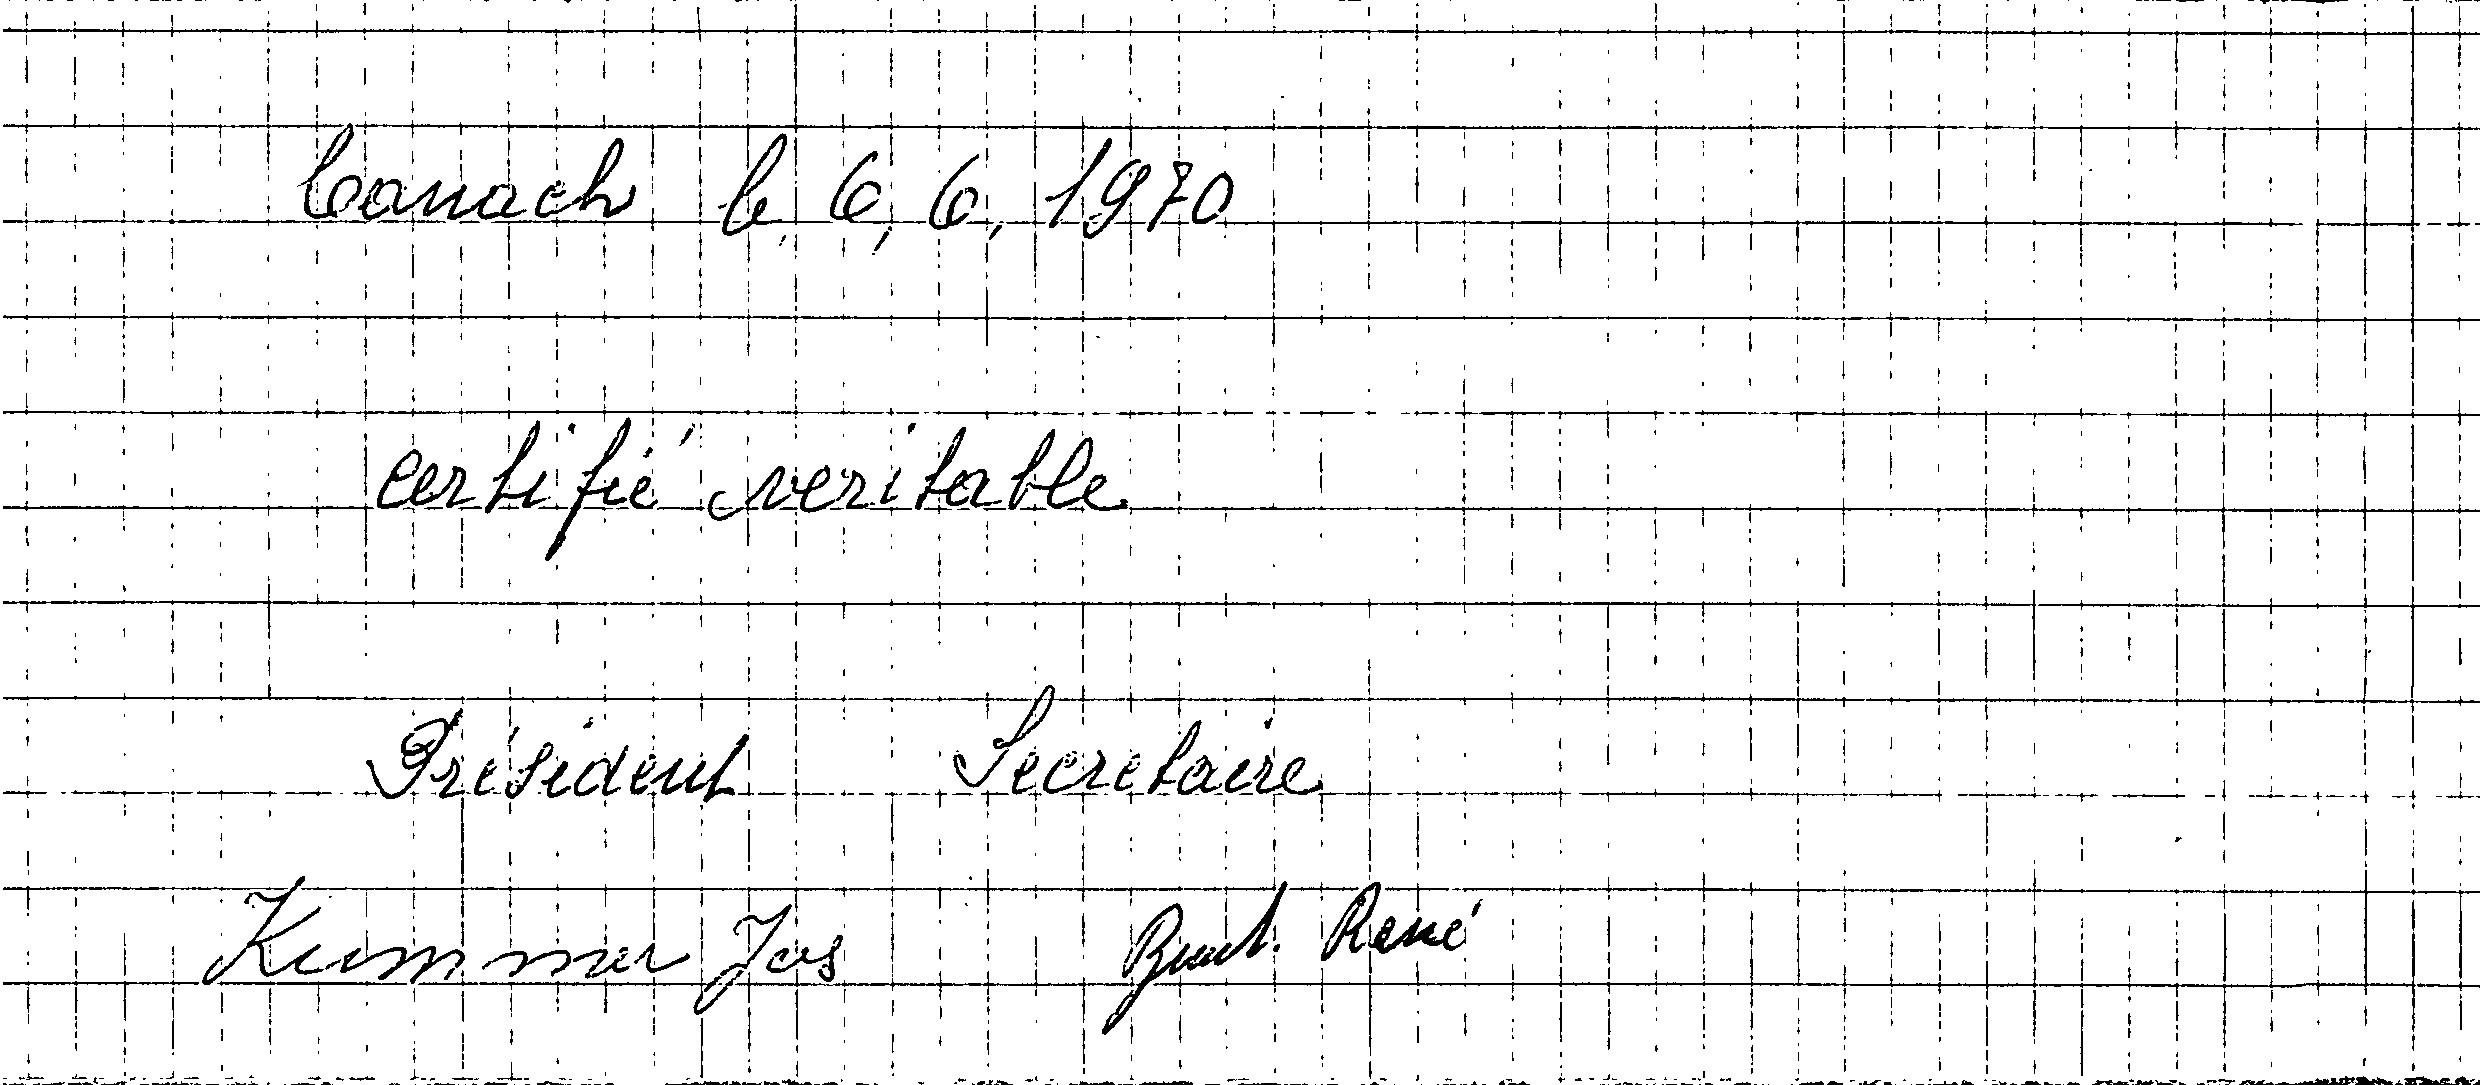 Canach le, 6, 6, 1970
certifié veritable
Président Secretaire
Kummer Jos René